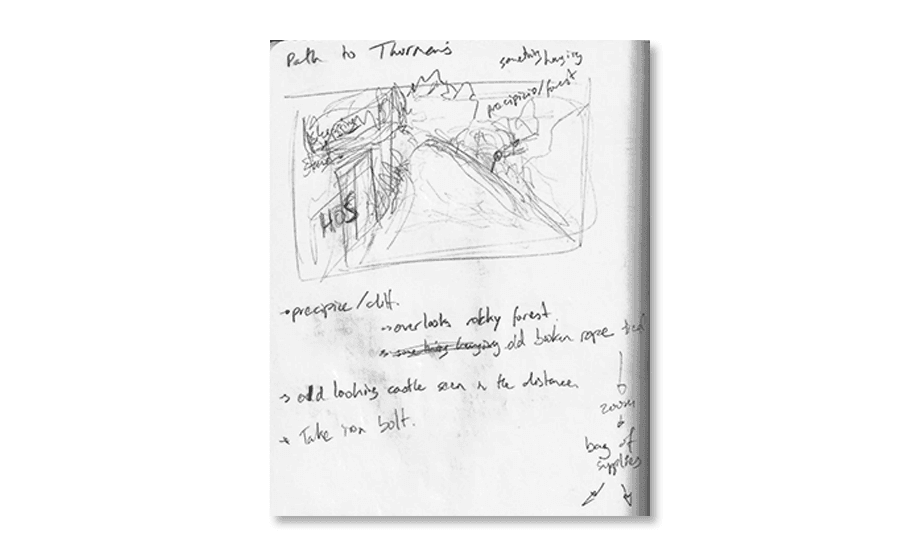 Path to Thornen's
something hanging
precipicio/forest
HOS
→ precipice/cliff.
→ overlooks rocky forest.
→ something hanging old broken rope tied
→ odd looking castle seen in the distance.
→ Take iron bolt.
zoom
bag of
supplies